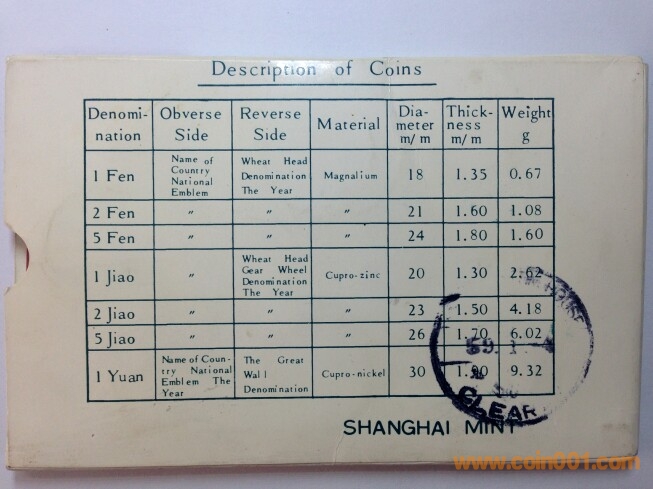 Description of Coins
Denomi- Obverse Reverse Material Dia- Thick- Weight
nation Side Side meter ness g
m/m m/m
1 Fen Name of Country National Emblem Wheat Head Denomination The Year Magnalium 18 1.35 0.67
2 Fen 〃 〃 〃 21 1.60 1.08
5 Fen 〃 〃 〃 24 1.80 1.60
1 Jiao 〃 Wheat Head Gear Wheel Denomination The Year Cupro-zinc 20 1.30 2.62
2 Jiao 〃 〃 〃 23 1.50 4.18
5 Jiao 〃 〃 〃 26 1.70 6.02
1 Yuan Name of Coun- try National Emblem The Year The Great Wall Denomination Cupro-nickel 30 1.90 9.32
HOUSE
CLEAR
SHANGHAI MINT
www.coin001.com